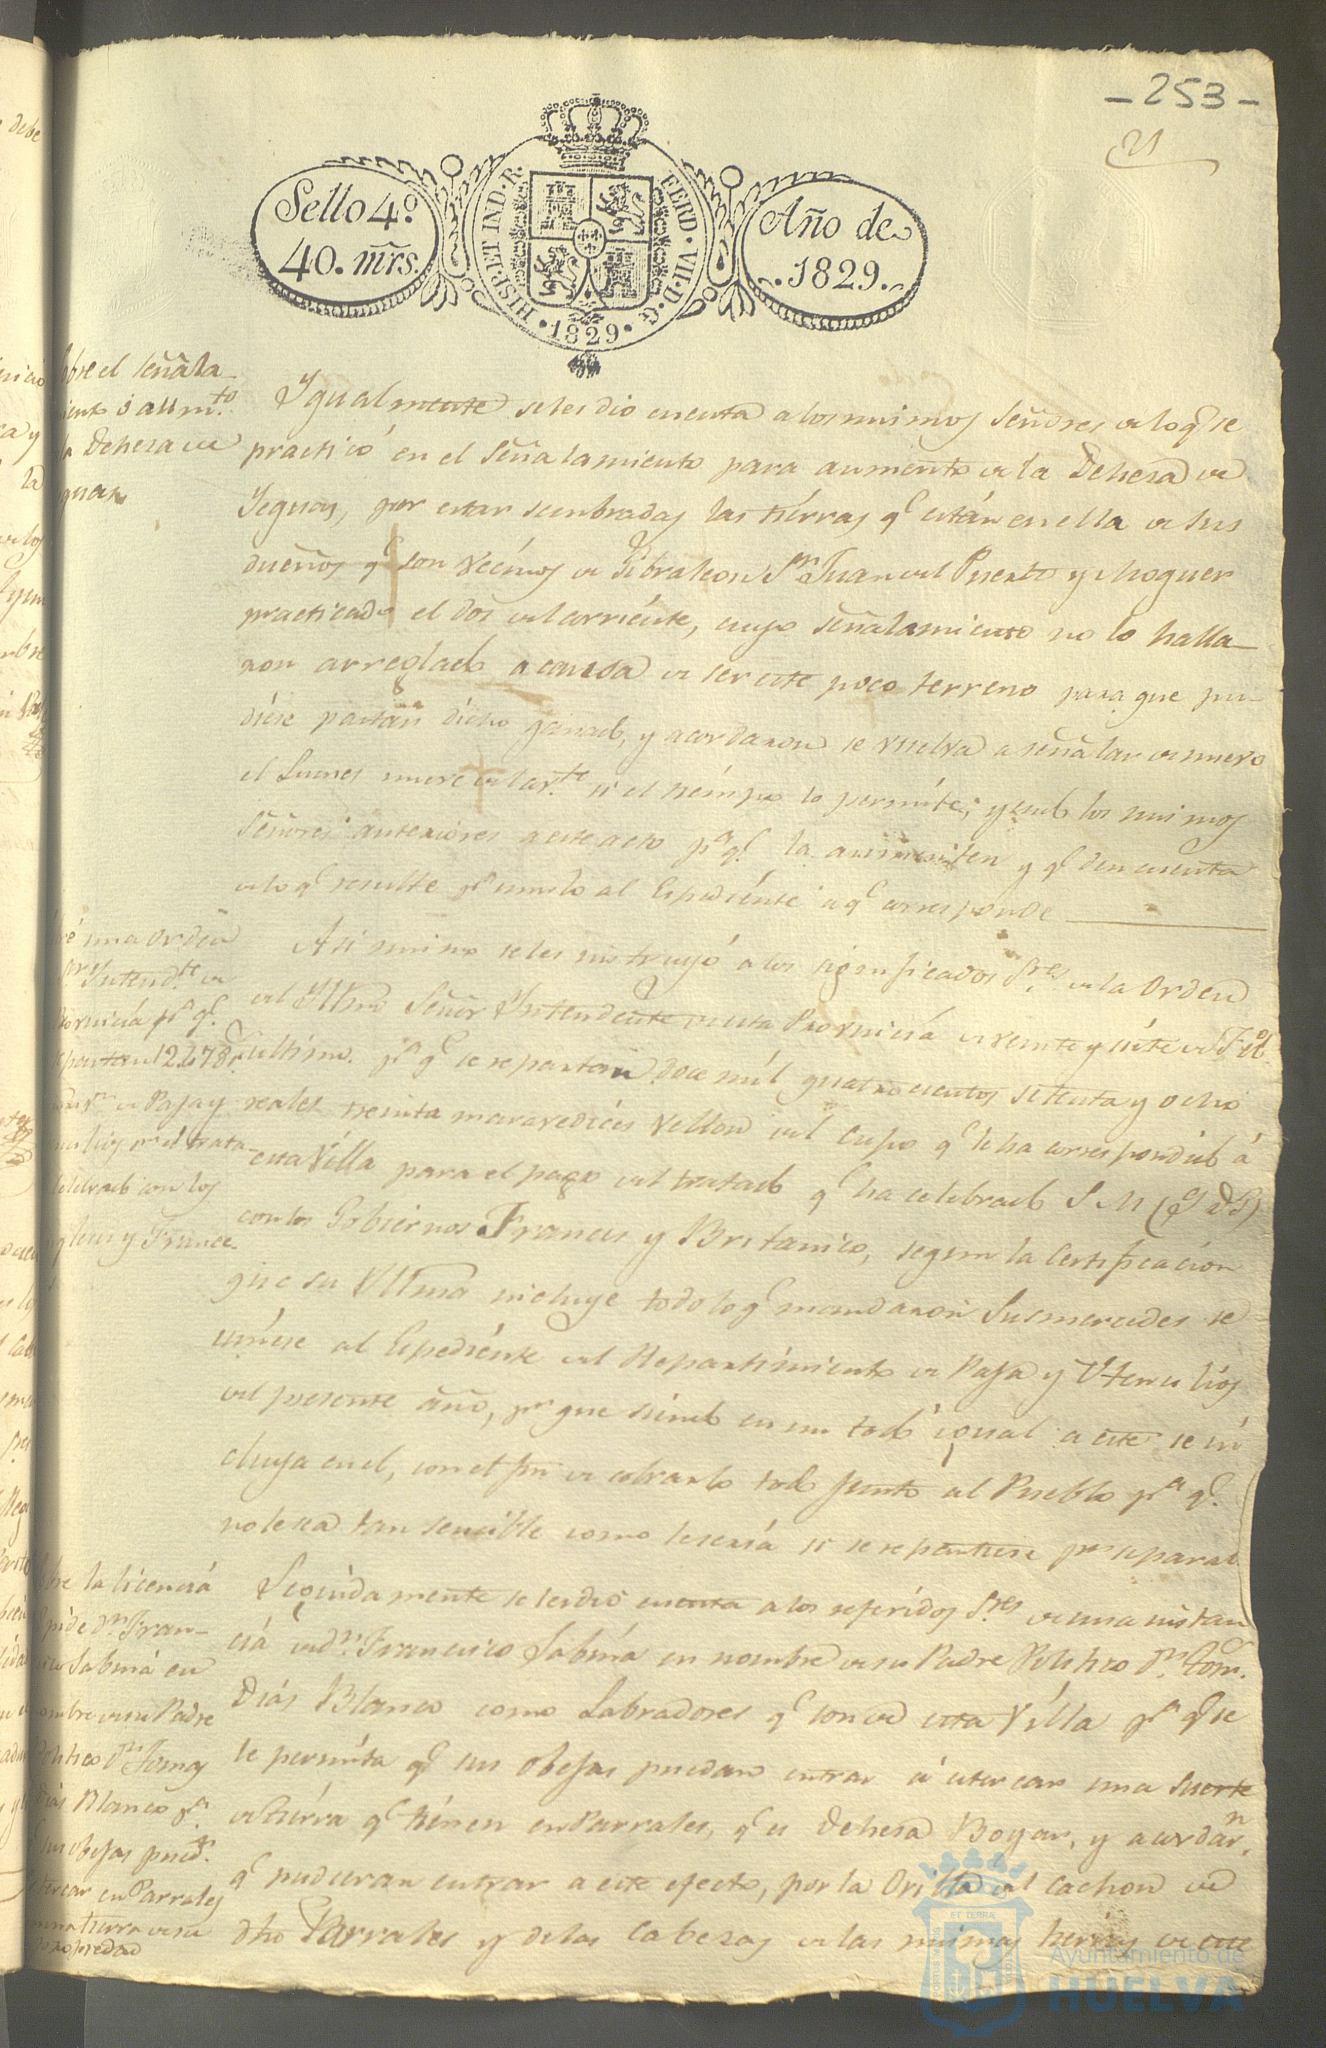 - 253 -
21
Sello 4º
40. mrs.
HISP. ET IND. R.
FERD. VII. D. G.
1829
Año de
1829.
bre el señala
iento ó aumto
la Dehesa de
guas
Ygualmente se les dio cuenta a los mismos Señores de lo q. se
practicó en el señalamiento para aumento de la Dehesa de
Yeguas, por estar sembradas las tierras q. están en ella de sus
dueños q. son vecinos de Gibraleon Sn. Juan del Puerto y Moguer
practicado el dos del corriente, cuyo señalamiento no lo halla-
ron arreglado a causa de ser este poco terreno para que pu-
diese pastar dicho ganado, y acordaron se vuelva a señalar de nuevo
el Lunes nueve del corte. si el tiempo lo permite; yendo los mismos
Señores anteriores a este acto pa. q. la aumenten y q. den cuenta
de lo q. resulte pa. unirlo al Espediente a q. corresponde
re una orden
Intendte. de
Provincia pa. q.
epartan 12.478 r
de Paja y
silios pr. el trata
celebrado con los
gleses y France
Asi mismo se les instruyó a los significados Sres. de la Orden
del Yltmo Señor Yntendente de esta Provincia de veinte y siete de Feb.
ultimo. pa. q. se repartan doce mil quatro cientos setenta y ocho
reales treinta maravedices vellon del cupo q. le ha correspondido á
esta Villa para el pago del tratado q. ha celebrado S M (q D G)
con los Gobiernos Frances y Britanico, segun la Certificacion
que su Yltma incluye todo lo q. mandaron Sus mercedes se
uniese al Espediente del Repartimiento de Paja y Utensilios
del presente año, pa. que siendo en un todo igual a este se in
cluya en el, con el fin de cobrarlo todo junto al Pueblo pa. q.
no le sea tan sencible como le seria si se repartiese pr. separado
bre la licencia
pide Dn. Fran-
co Sabina en
ombre de su Padre
Politico Dn. Tomas
Dias Blanco pa.
sus obejas pued.
stercar en Parrales
una tierra de su
propiedad
Seguidamente se les dio cuenta a los referidos Sres. de una instan
cia de Dn. Francisco Sabina en nombre de su Padre Politico Dn. Tom.
Dias Blanco como Labradores q. son de esta Villa pa. q. se
le permita q. sus obejas puedan entrar á estercar una suerte
de tierra q. tienen en Parrales, q. es Dehesa Boyar, y acordarn.
q. pudieran entrar a este efecto, por la Orilla del cachon de
dho Parrales y de las Cabezas de las mismas tierras de este
Ayuntamiento de
HUELVA